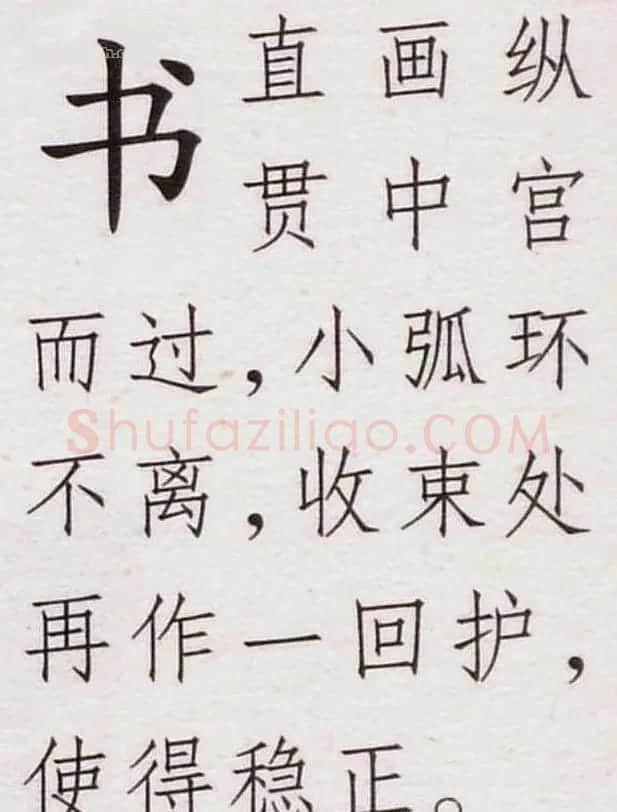 书
直画纵
贯中宫
而过,小弧环
不离,收束处
再作一回护,
使得稳正。
Shufaziliao.COM